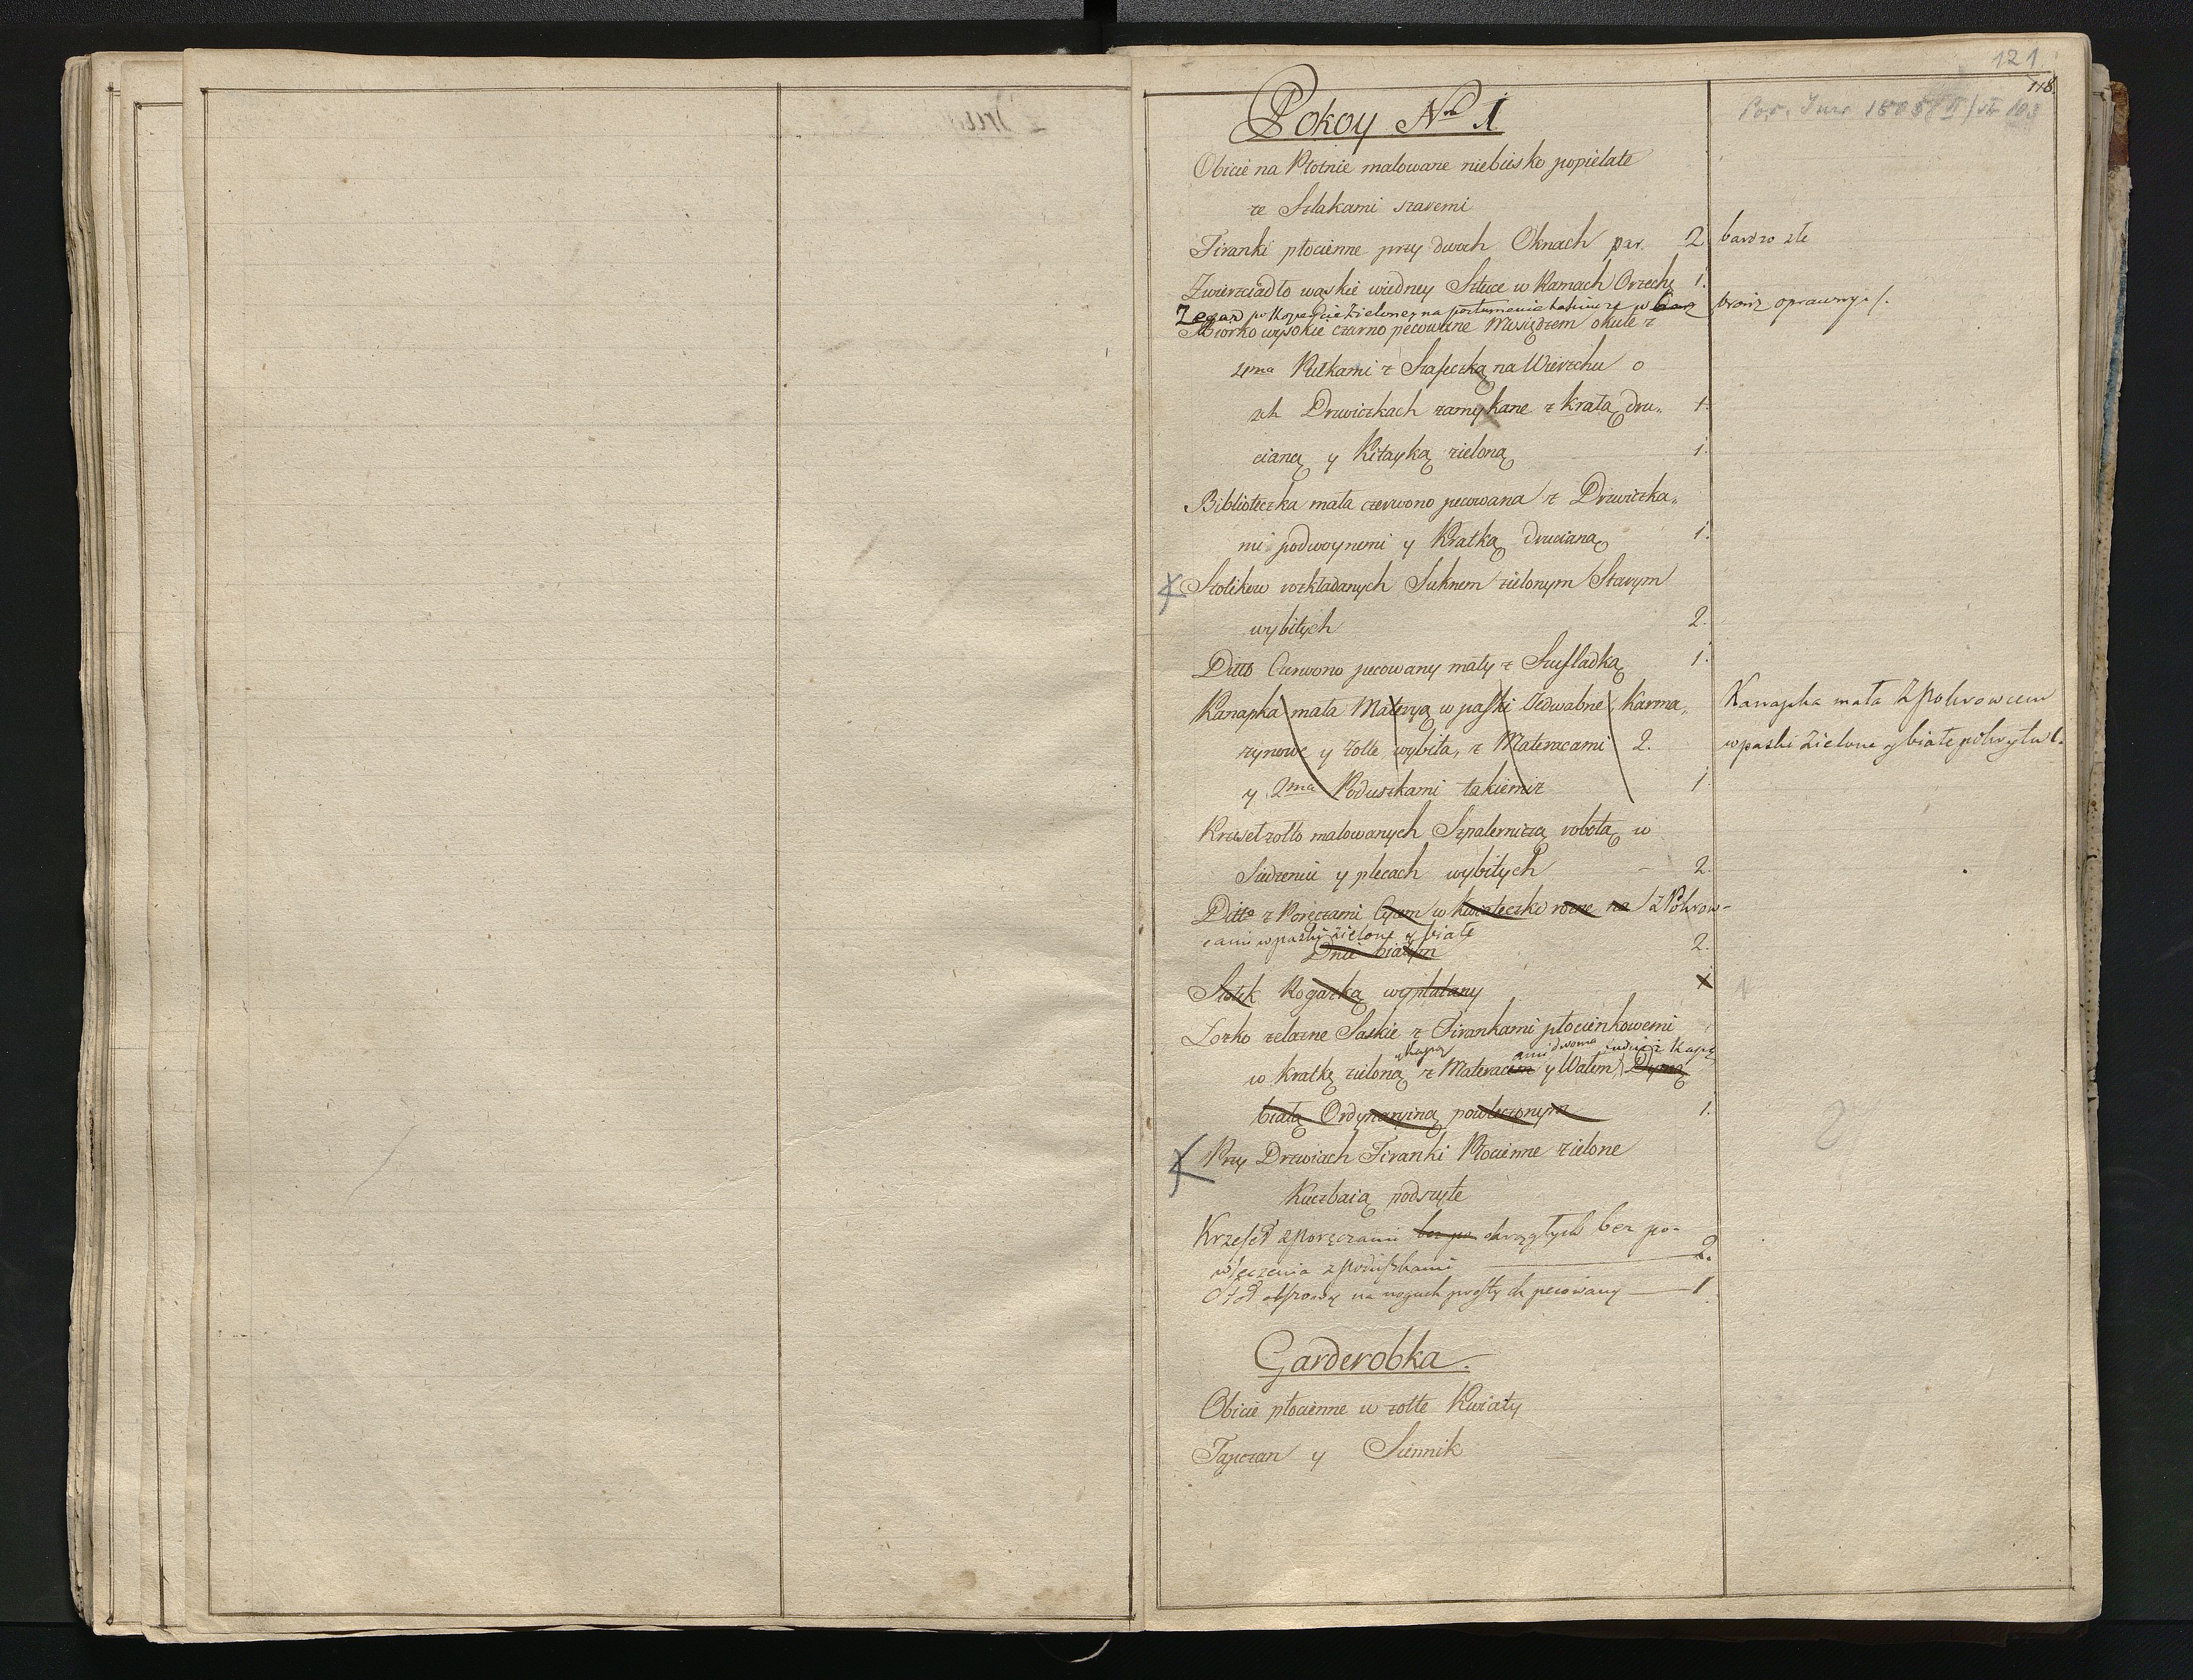 121
118.
Pokoy No 1
Obicie na Płotnie malowane niebiesko popielate
ze Szlakami szaremi
Firanki płocienne przy dwoch Oknach par. 2 bardzo złe
Zwierzciadło wąskie wiedney Sztuce w Ramach Orzech: 1.
Zegar w zielone na w bronz oprawny 1.
Biorko wysokie czarno pecowane Mosiądzem okute z
4ma Pułkami z Szafeczką na Wierzchu o
2ch Drzwiczkach zamykane z kratą dru„ 1.
cianą y Kitayką zieloną 1.
Biblioteczka mała czerwono pecowana z Drzwiczka„
mi podwoynemi y Kratką drucianą 1.
Stolikow rozkładanych Suknem zielonym Starym
wybitych 2.
Ditto Czerwono pecowany mały z Szufladką 1.
Kanapka mała Materyą w paski Jedwabne Karma„
zynowe y żołte wybita, z Materacami 2.
y 2ma Poduszkami takiemiż 1.
Kanapka mała z Pokrowcem
w paski zielone y białe pokryta 1.
Krzeseł żołto malowanych Szpalerniczą robotą w
Siedzeniu y plecach wybitych 2.
Ditto z Poręczami Cycem w kwiateczki rożne na z Pokrow-
cami w paski zielone y białe
Dnie białym 2.
Stołek Rogozką wyplatany 1
Łozko żelazne Saskie z Firankami płocienkowemi
w kratkę zieloną y kapą z Materacem ami dwoma y Wałem Dymą
białą Ordynaryiną powleczonym 1.
Przy Drzwiach Firanki Płocienne zielone
Kuczbaią podszyte
Krzeseł z Poręczami bez po okrągłych bez po-
włeczenia z poduszkami 2.
Stoł na nogach prostych pecowany 1
Garderobka.
Obicie płocienne w żołte Kwiaty
Tapczan y Siennik